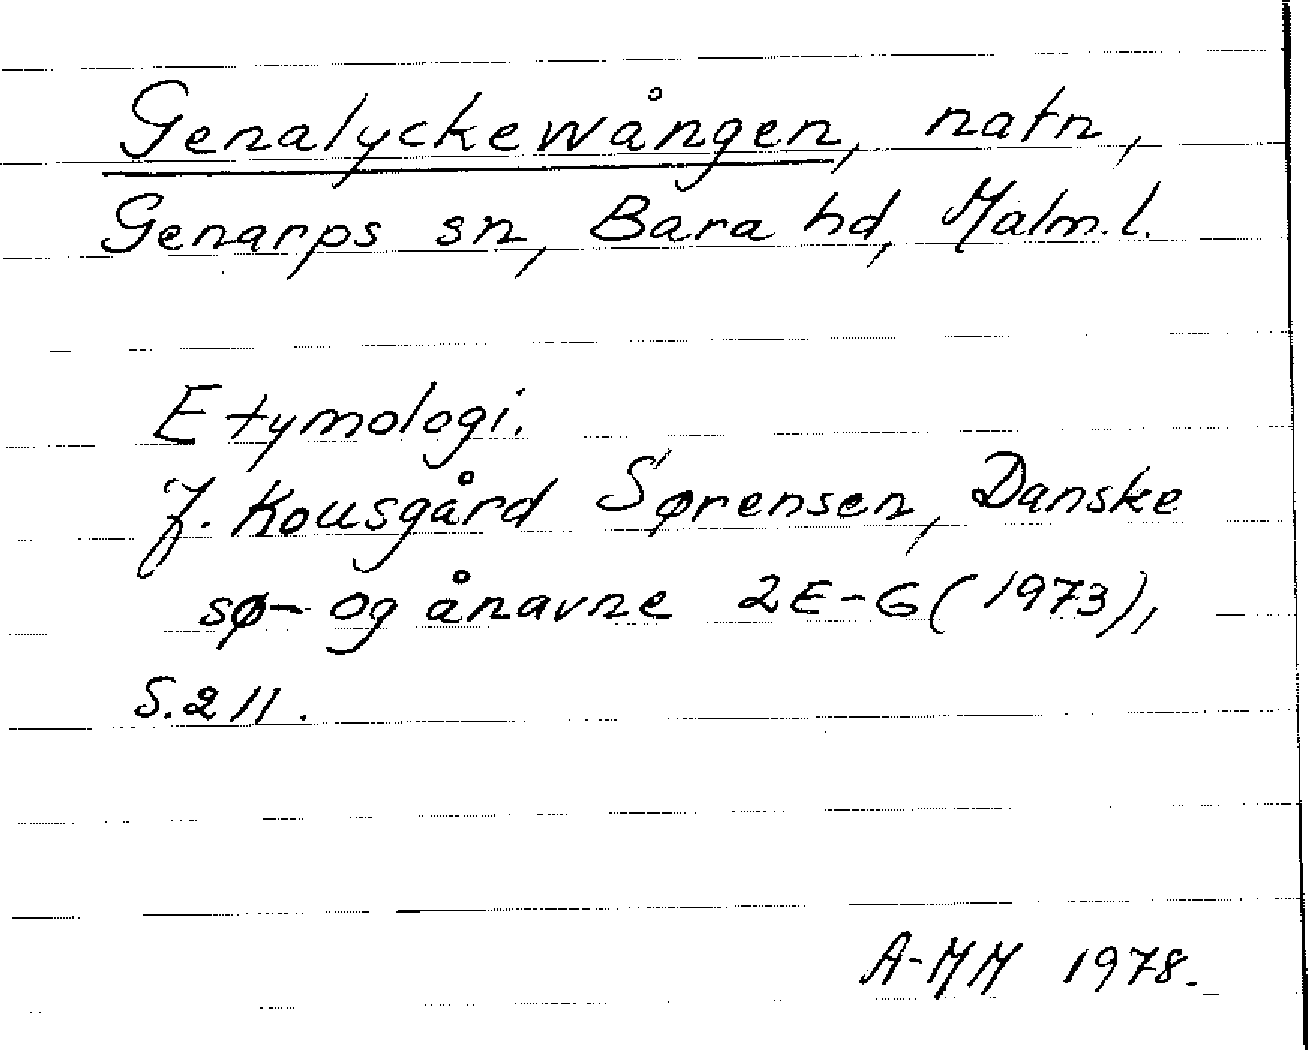 Genalyckewången, natn,
Genarps sn, Bara hd, Malm.l.
Etymologi.
J. Kousgård Sørensen, Danske
sø- og ånavne 2E-G (1973),
S.211.
A-MM 1978.